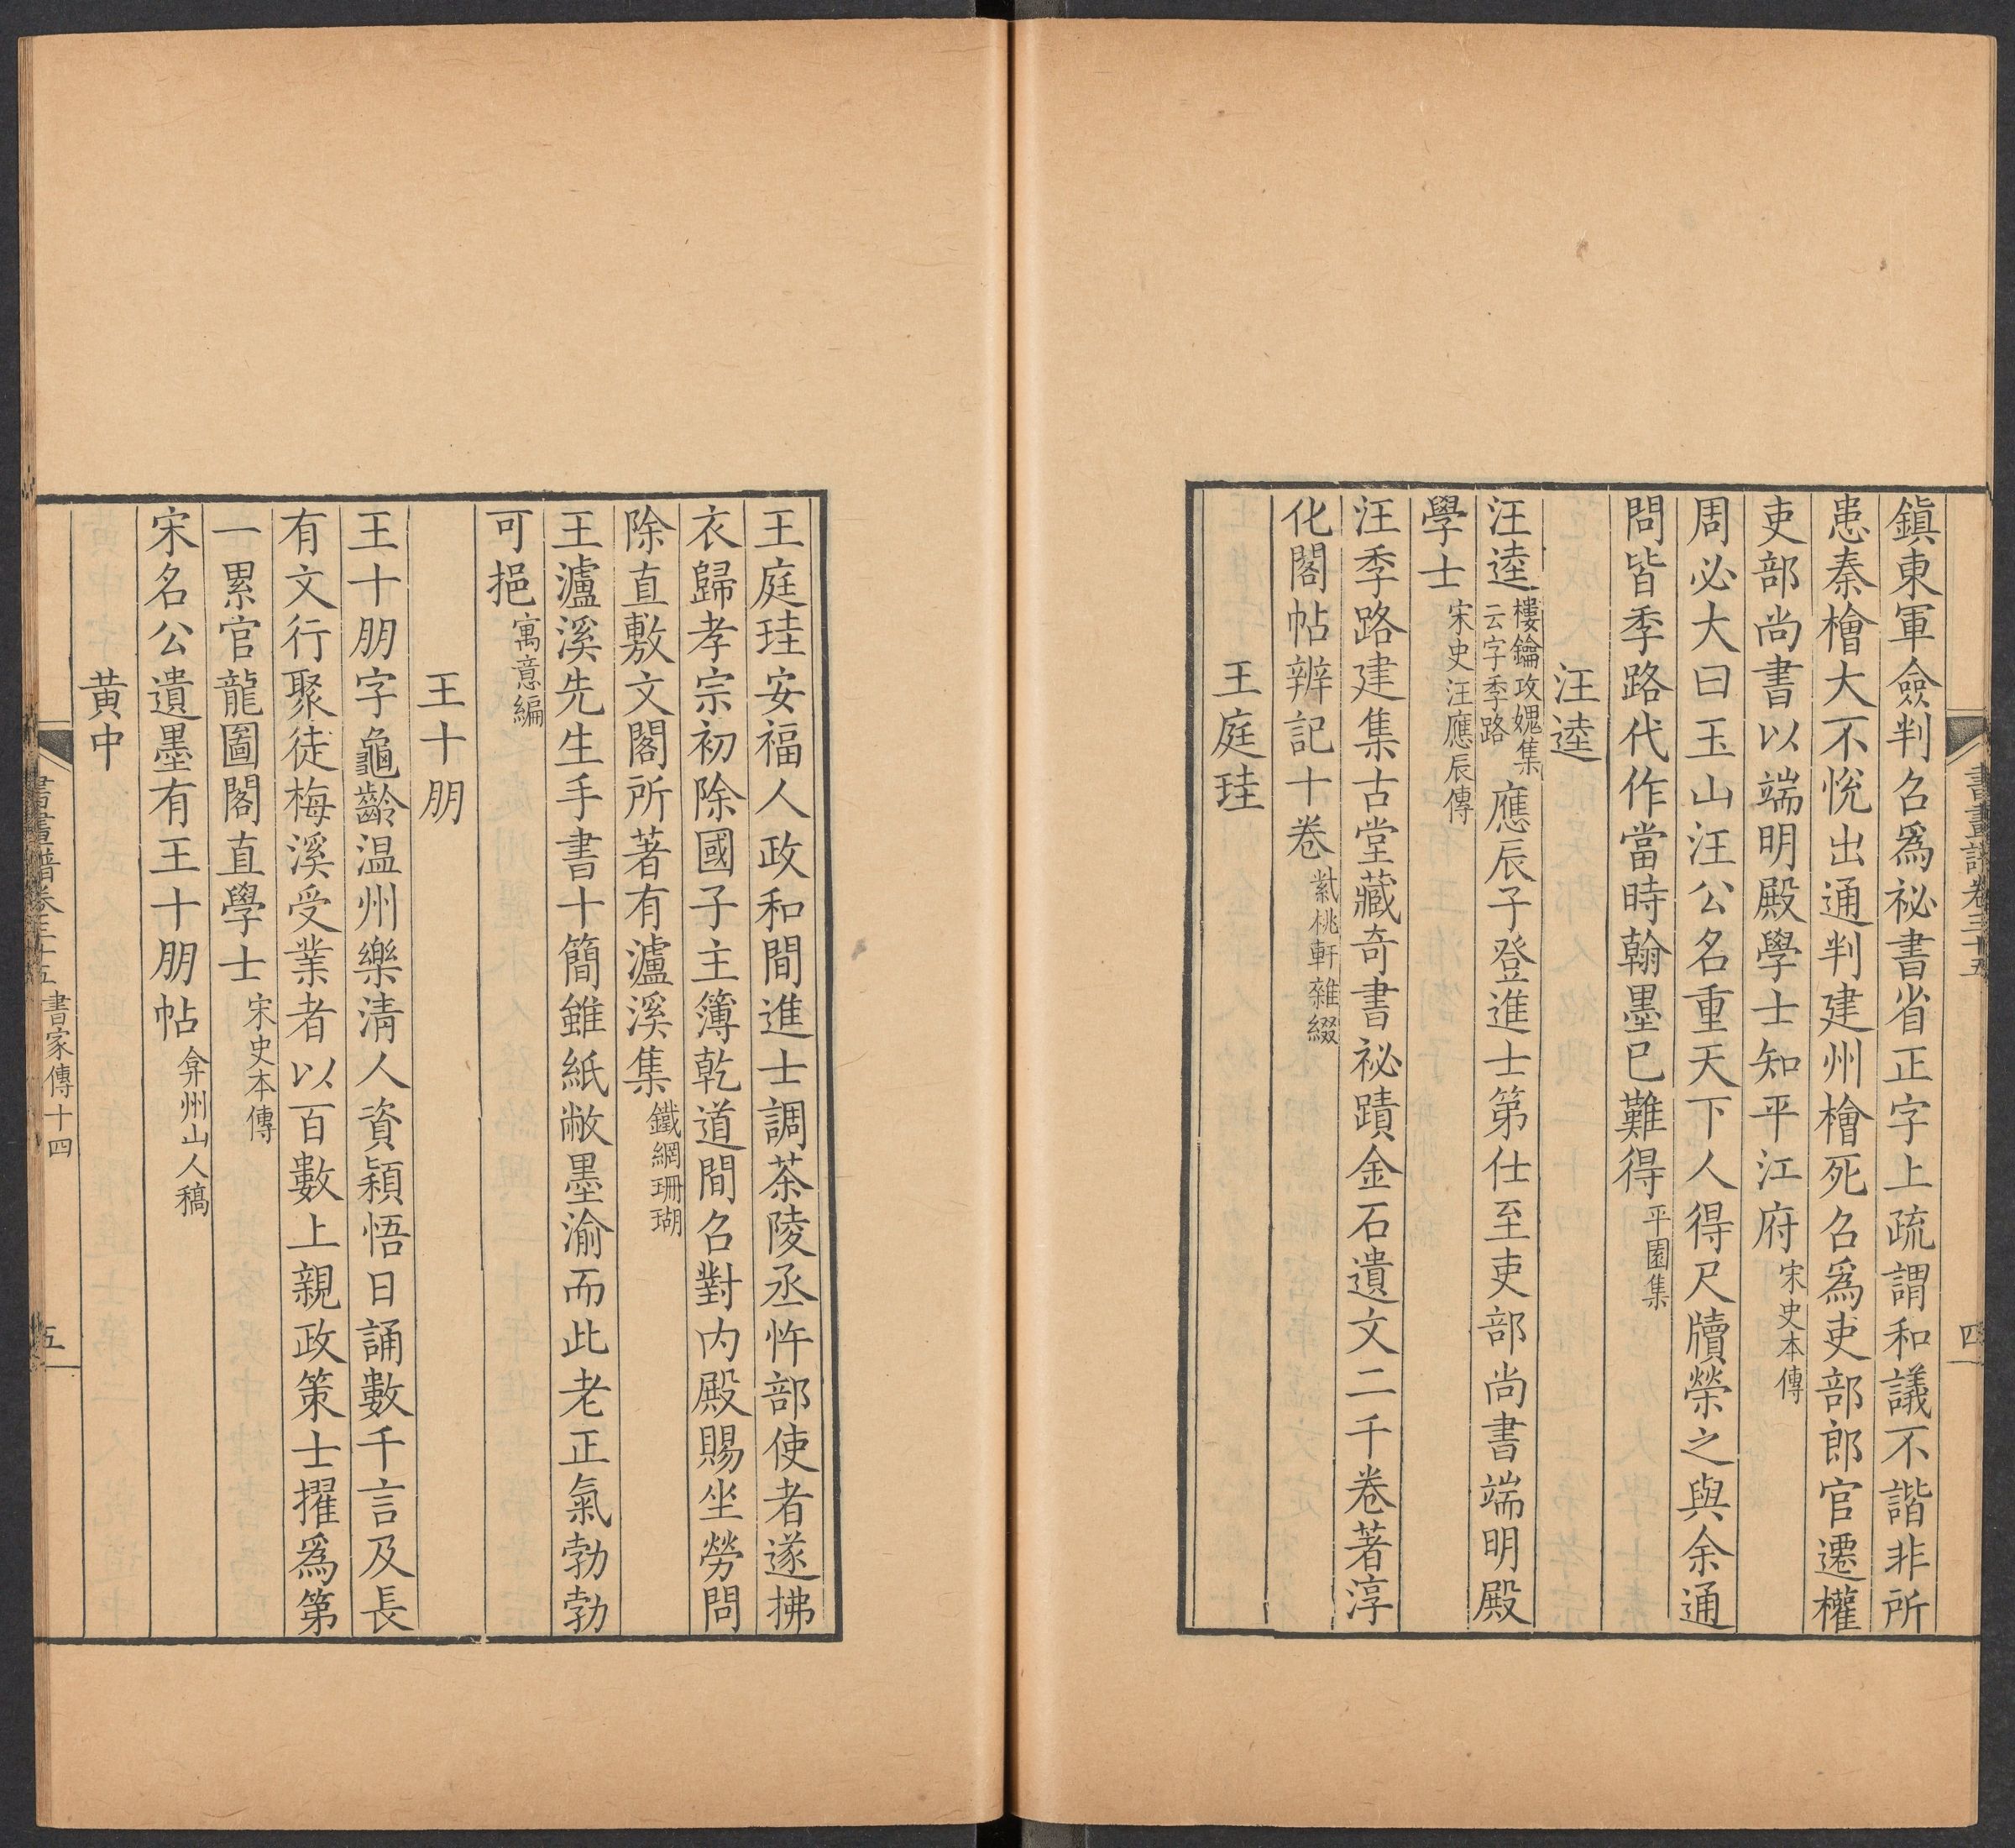 書畫譜卷三十五
四
鎮東軍僉判召爲祕書省正字上疏謂和議不諧非所
患秦檜大不悅出通判建州檜死召爲吏部郎官遷權
吏部尚書以端明殿學士知平江府宋史本傳
周必大曰玉山汪公名重天下人得尺牘榮之與余通
問皆季路代作當時翰墨已難得平園集
汪逵
汪逵樓鑰攻媿集云字季路應辰子登進士第仕至吏部尚書端明殿
學士宋史汪應辰傳
汪季路建集古堂藏奇書祕蹟金石遺文二千卷著淳
化閣帖辨記十卷紫桃軒雜綴
王庭珪
王庭珪安福人政和間進士調茶陵丞忤部使者遂拂
衣歸孝宗初除國子主簿乾道間召對内殿賜坐勞問
除直敷文閣所著有瀘溪集鐵網珊瑚
王瀘溪先生手書十簡雖紙敝墨渝而此老正氣勃勃
可挹寓意編
王十朋
王十朋字龜齡温州樂清人資穎悟日誦數千言及長
有文行聚徒梅溪受業者以百數上親政策士擢爲第
一累官龍圖閣直學士宋史本傳
宋名公遺墨有王十朋帖弇州山人稿
黄中
書畫譜卷三十五 書家傳十四
五